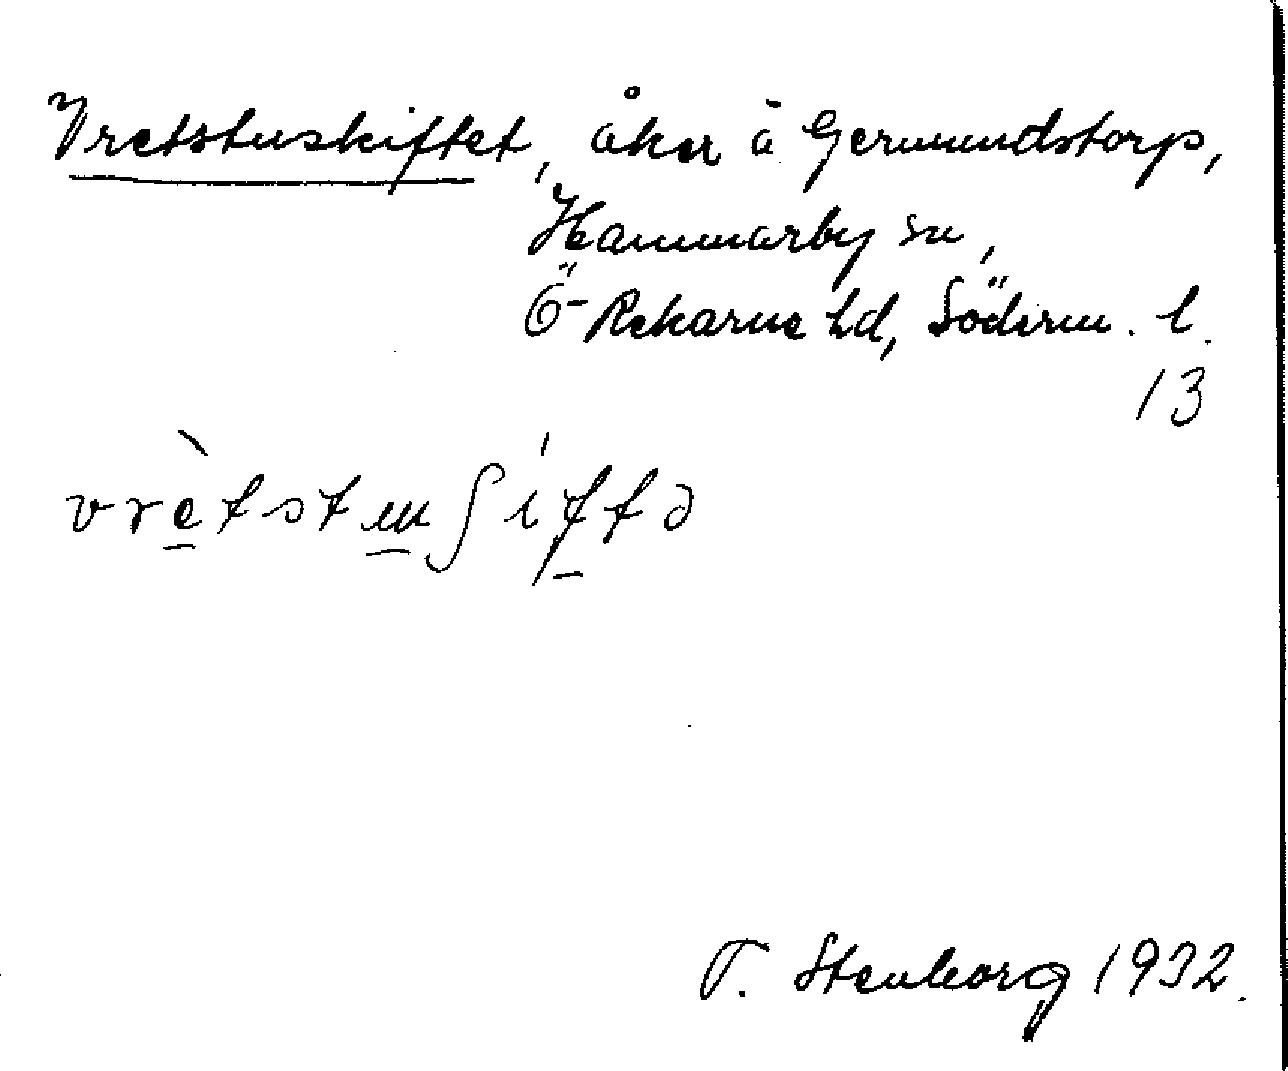 Vretstuskiftet, åker å Germundstorp,
Hammarby sn,
Ö-Rekarne hd, Söderm. l.
13
vrètstuʃíftə
T. Stenborg 1932.